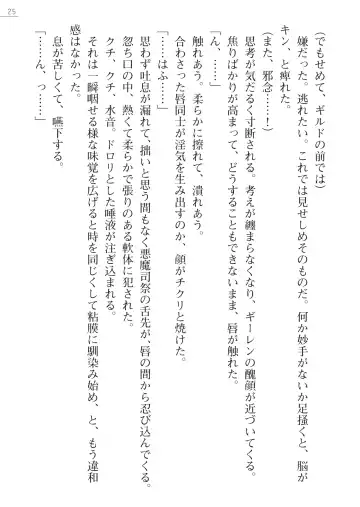 25
(でもせめて、ギルドの前では)
嫌だった。逃れたい。これでは見せしめそのものだ。何か妙手がないか足掻くと、脳が
キン、と痺れた。
(また、邪念……！)
思考が気だるく寸断される。考えが纏まらなくなり、ギーレンの醜顔が近づいてくる。
焦りばかりが高まって、どうすることもできないまま、唇が触れた。
「ん、……」
触れあう。柔らかに擦れて、潰れあう。
合わさった唇同士が淫気を生み出すのか、顔がチクリと焼けた。
「……はふ……」
思わず吐息が漏れて、拙いと思う間もなく悪魔司祭の舌先が、唇の間から忍び込んでくる。
忽ち口の中、熱くて柔らかで張りのある軟体に犯された。
クチ、クチ、水音。ドロリとした唾液が注ぎ込まれる。
それは一瞬咽せる様な味覚を広げると時を同じくして粘膜に馴染み始め、と、もう違和
感はなかった。
息が苦しくて、嚥下する。
「……ん、っ……」